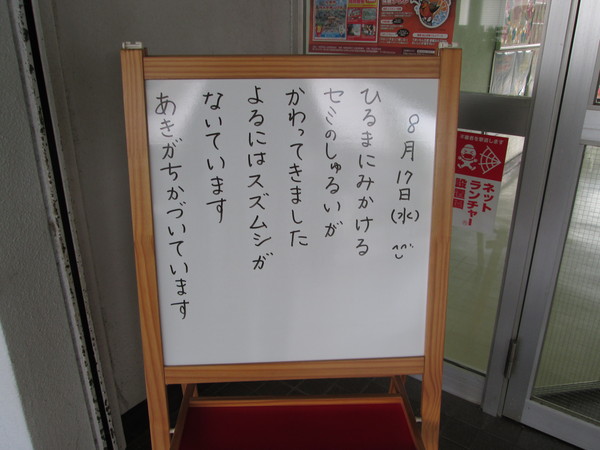 8月17日(水)
ひるまにみかける
セミのしゅるいが
かわってきました
よるにはスズムシが
ないています
あきがちかづいています
不審者を撃退します
ネット
ランチャー
設置園